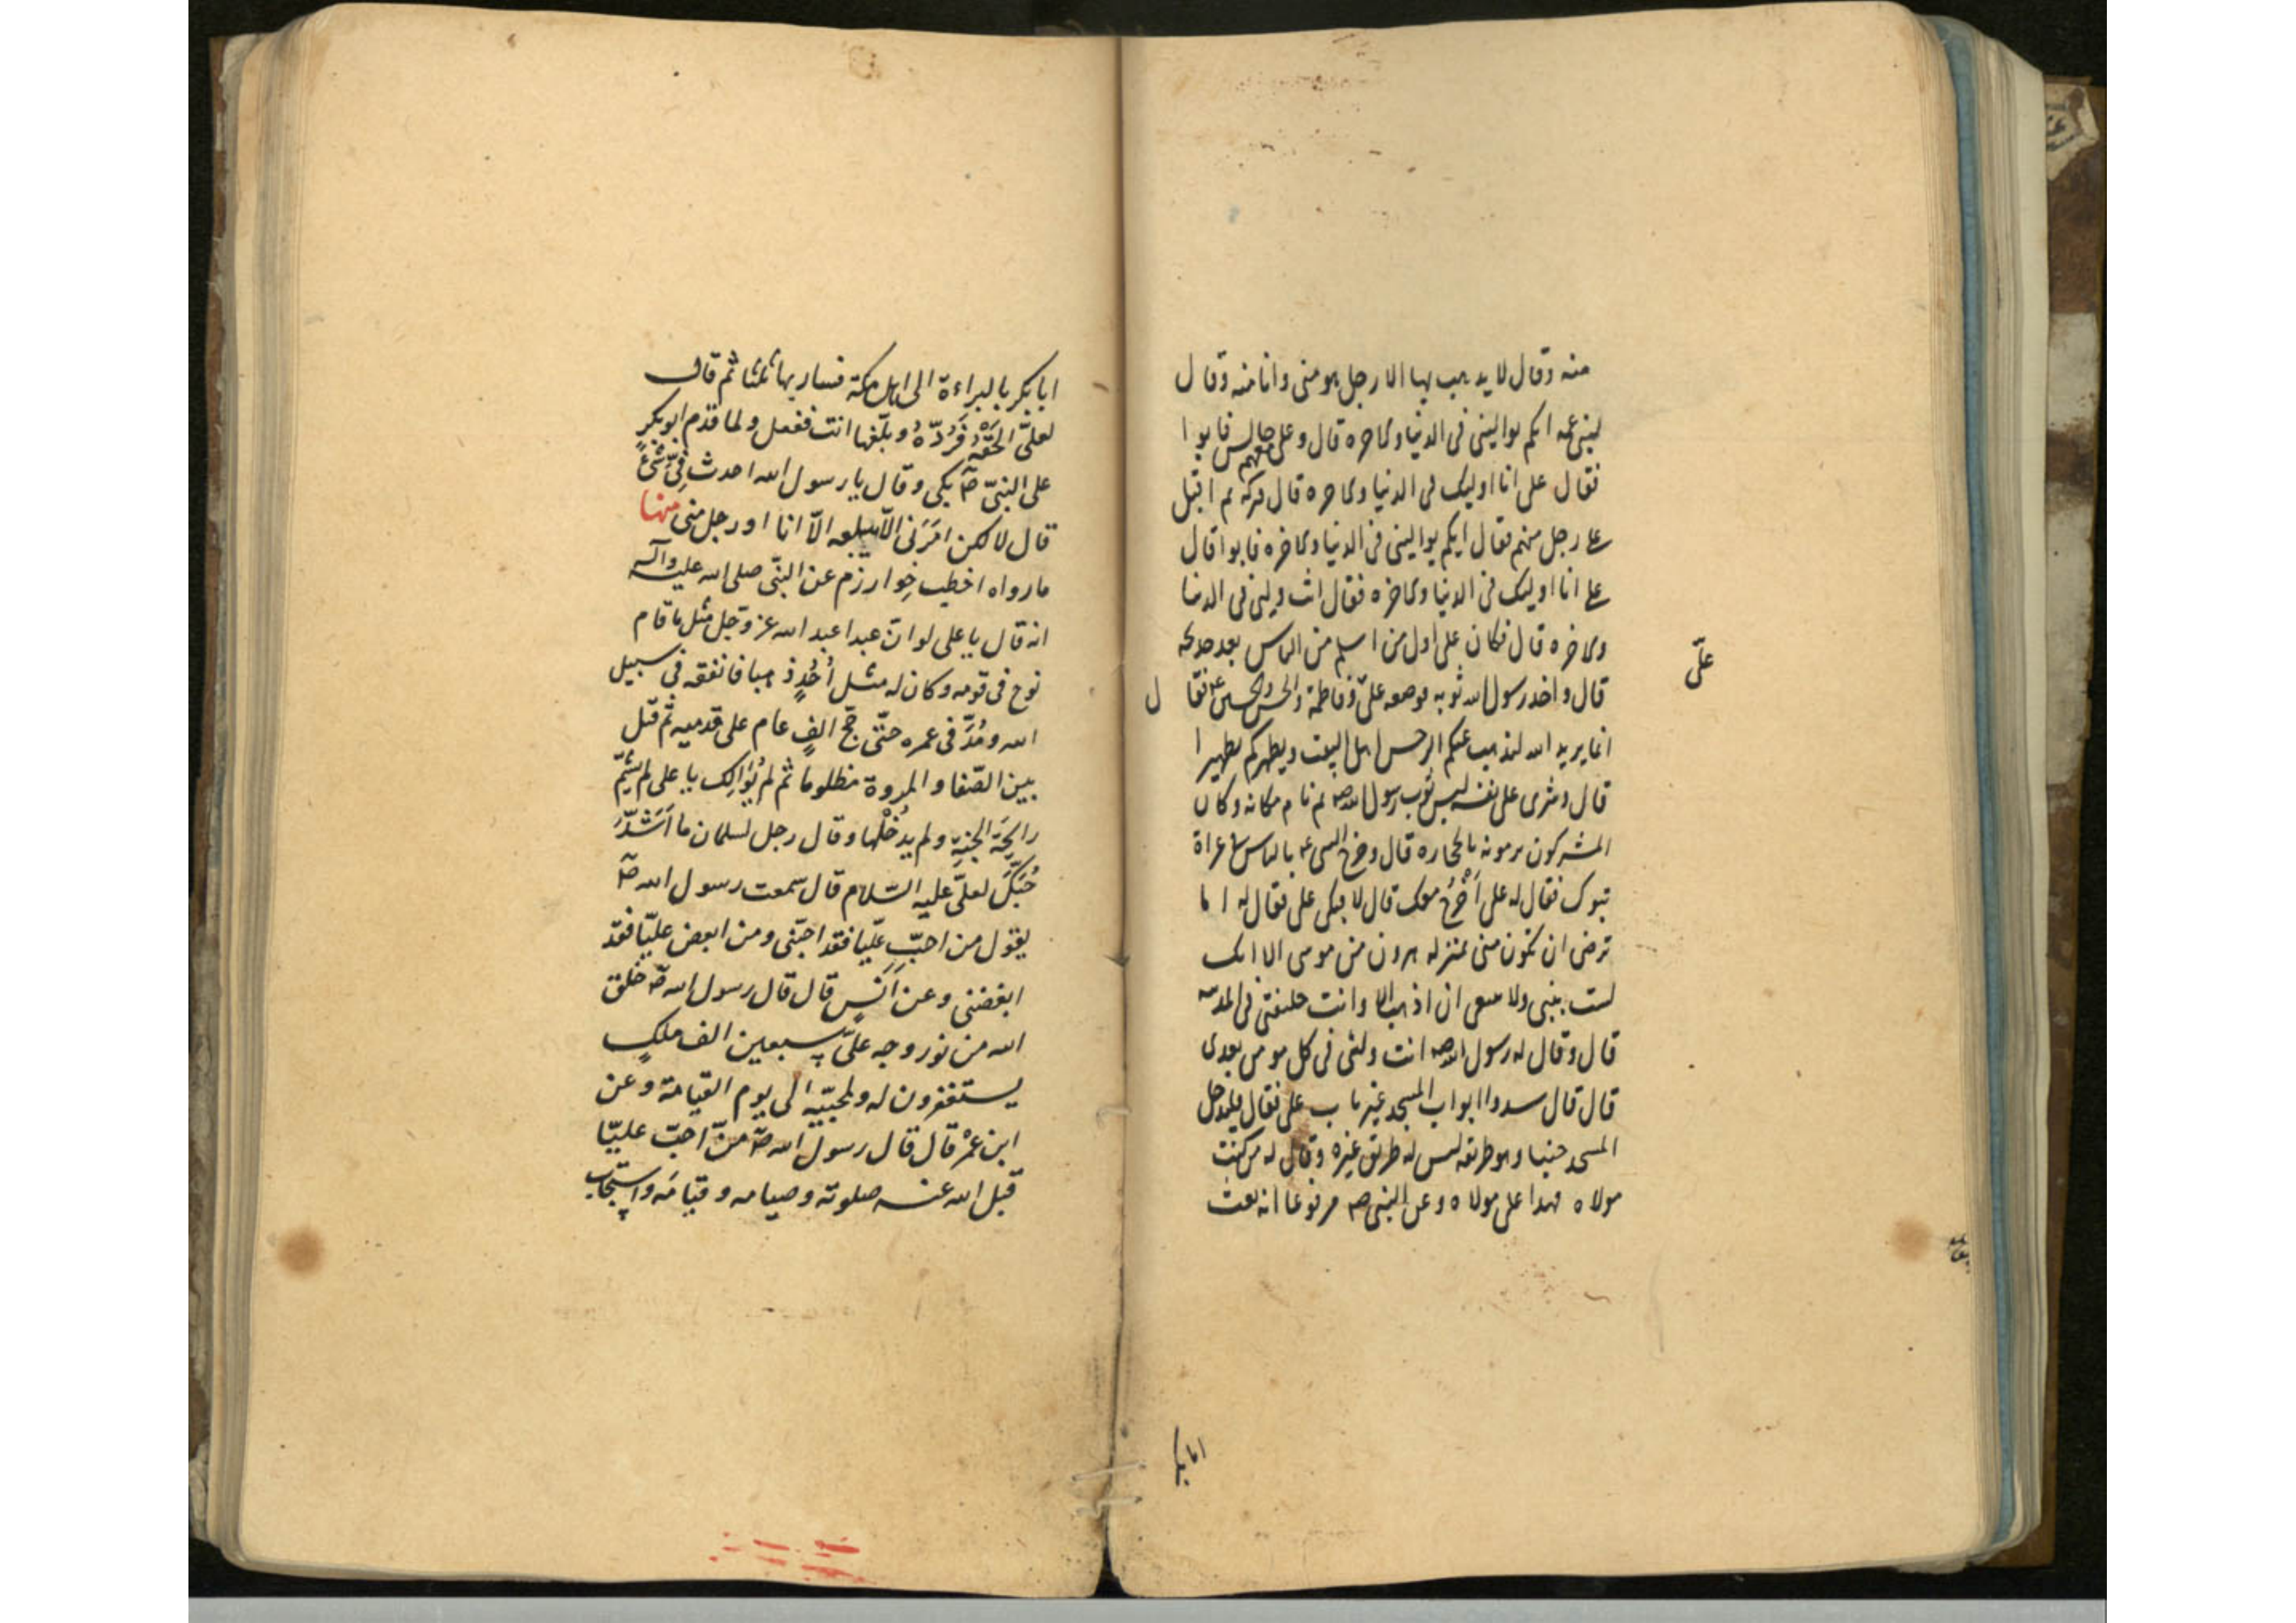 منه وقال لا يذهب بها الا رجل هو منى وانا منه وقال
لبنى عمه ايكم يوالينى فى الدنيا والاخره قال وعلى معهم جالس فابوا
فقال على انا اوليك فى الدنيا والاخره قال فتركه ثم اقبل
على رجل منهم فقال ايكم يوالينى فى الدنيا والاخره فابوا قال
على انا اوليك فى الدنيا والاخره فقال انت وليى فى الدنيا
والاخره قال فكان على اول من اسلم من الناس بعد خديجه
علىّ
قال واخذ رسول الله ثوبه فوضعه على وفاطمة والحسن والحسين فقال
انما يريد الله ليذهب عنكم الرجس اهل البيت ويطهركم تطهيرا
قال وشرى على نفسه لبس ثوب رسول الله صم ثم نام مكانه وكان
المشركون يرمونه بالحجاره قال وخرج النبى بالناس فى غزاة
تبوك فقال له على اَخْرُج معك قال لا فبكى على فقال له اما
ترضى ان تكون منى بمنزله هرون من موسى الا انك
لست بنبى ولا ينبغى ان اذهب الا وانت خليفتى فى المدينه
قال وقال له رسول الله صم انت وليى فى كل مومن بعدى
قال قال سدوا ابواب المسجد غير باب على فقال فيدخل
المسجد جنبا وهو طريقه ليس له طريق غيره وقال له من كنت
مولاه فهذا على مولاه وعن النبى صم مرفوعا انه بعث
ابابكر
ابابكر بالبراءة الى اهل مكة فسار بها ثلثا ثم قال
لعلىّ الحَقْهُ فَرُدّهُ وبلّغها انت ففعل ولما قدم ابوبكرٍ
على النبىّ صۤ بكى وقال يا رسول الله احدث فِىّ شئ
قال لا لكن امَرَنى الّا يبلغه الّا انا او رجل منى منها
مارواه اخطب خوارزم عن النبّى صلى الله عليه وآله
انه قال يا على لو انّ عبدا عبد الله عز وجلّ مثل ما قام
نوح فى قومه وكان له مثل اُحُدٍ ذهبا فانفقه فى سبيل
الله ومُدَّ فى عمره حتّى حجّ الف عام على قدميه ثم قتل
بين الصّفا والمروة مظلوما ثم لم يُوَالِك يا على لم يشمّ
رائحَةَ الجنةِ ولم يدْخُلها وقال رجل لسلمان ما اَشَدَّ
حُبَّكَ لعلىّ عليه السّلام قال سمعت رسول الله صۤ
يقول من احبّ عليّا فقد احبّنى ومن ابغض عليّا فقد
ابغضنى وعن اَنَسٍ قال قال رسول الله صۤ خلق
الله من نور وجه علىّ سبعين الف ملكٍ
يستغفرون له ولمحبّيه الى يوم القيامة وعن
ابن عُمَرْ قال قال رسول الله صۤ منْ احبّ عليّا
قبل الله عنه صلوته وصيامه وقيامَه واستجاب